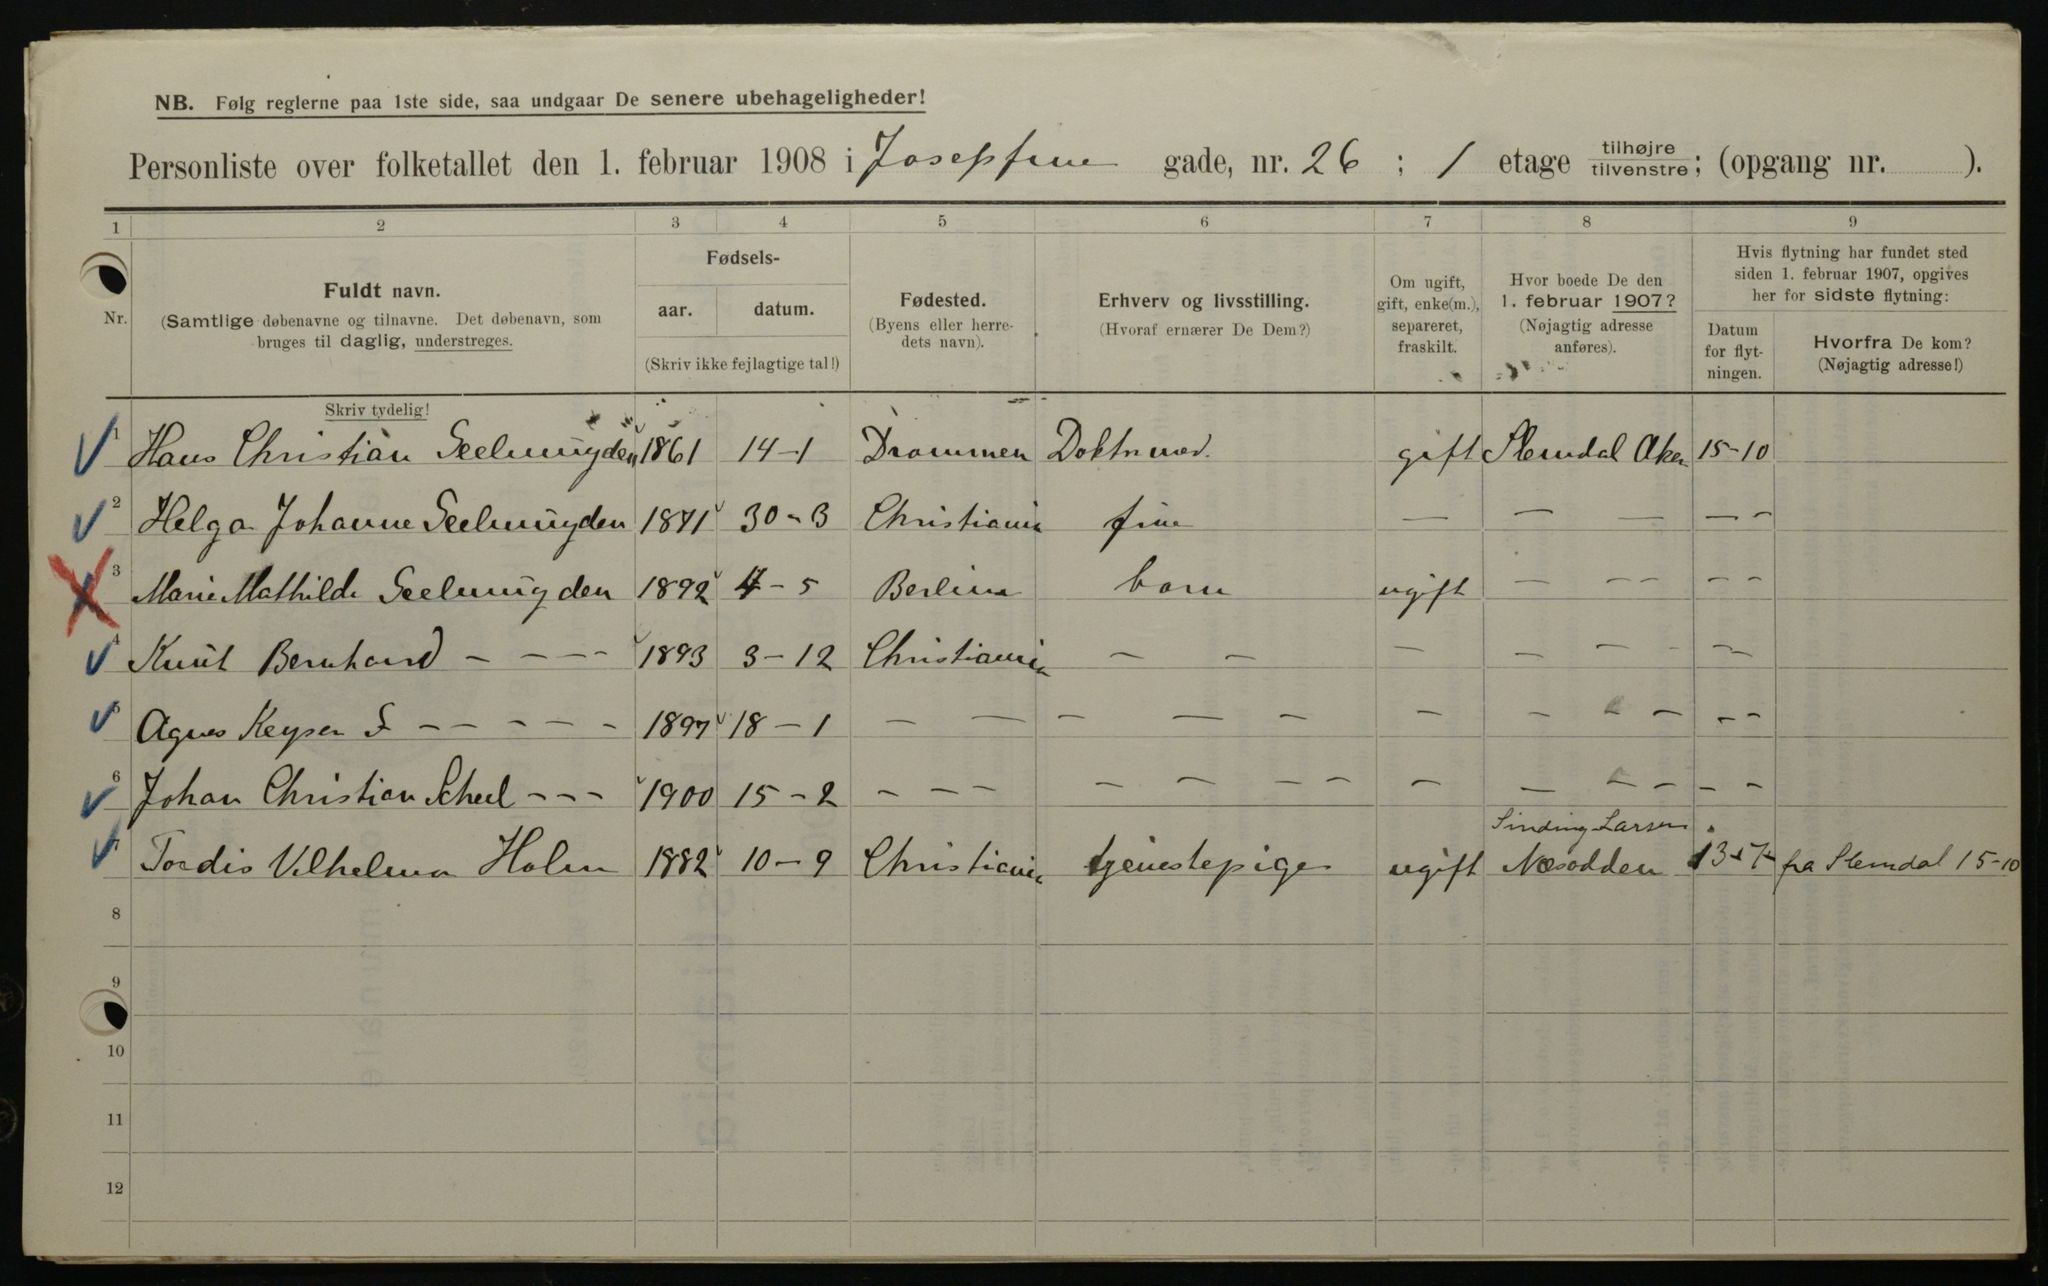 NB. Følg reglerne paa 1ste side, saa undgaar De senere ubehageligheder!
Personliste over folketallet den 1. februar 1908 i Josephine gade, nr. 26 ; 1 etage tilhøjre tilvenstre; (opgang nr. ).
1 2 3 4 5 6 7 8 9
Nr.
Fuldt navn.
(Samtlige døbenavne og tilnavne. Det døbenavn, som
bruges til daglig, understreges.
Skriv tydelig!
Fødsels-
aar. datum.
(Skriv ikke fejlagtige tal!)
Fødested.
(Byens eller herre-
dets navn).
Erhverv og livsstilling.
(Hvoraf ernærer De Dem?)
Om ugift,
gift, enke(m.),
separeret,
fraskilt.
Hvor boede De den
1. februar 1907?
(Nøjagtig adresse
anføres).
Hvis flytning har fundet sted
siden 1. februar 1907, opgives
her for sidste flytning:
Datum
for flyt-
ningen.
Hvorfra De kom?
(Nøjagtig adresse!)
1 Hans Christian Seelmuyden 1861 14-1 Drammen Doktr med. gift Slemdal Aker 15-10
2 Helga Johanne Seelmuyden 1871 30-3 Christiania frue — — — — -
3 Marie Mathilde Seelmuyden 1892 4-5 Berlin barn ugift — — - - -
4 Knut Bernhard - - - - 1893 3-12 Christiania — — — — — - - -
5 Agnes Keyser S - - - - - - 1897 18-1 — — — — — — — — - -
6 Johan Christian Scheel - - - 1900 15-2 - - - — — — — — — — - - -
Sinding Larsen
7 Tordis Vilhelma Holm 1882 10-9 Christiania tjenestepige ugift Næsodden 13-7- fra Slemdal 15-10
8
9
10
11
12